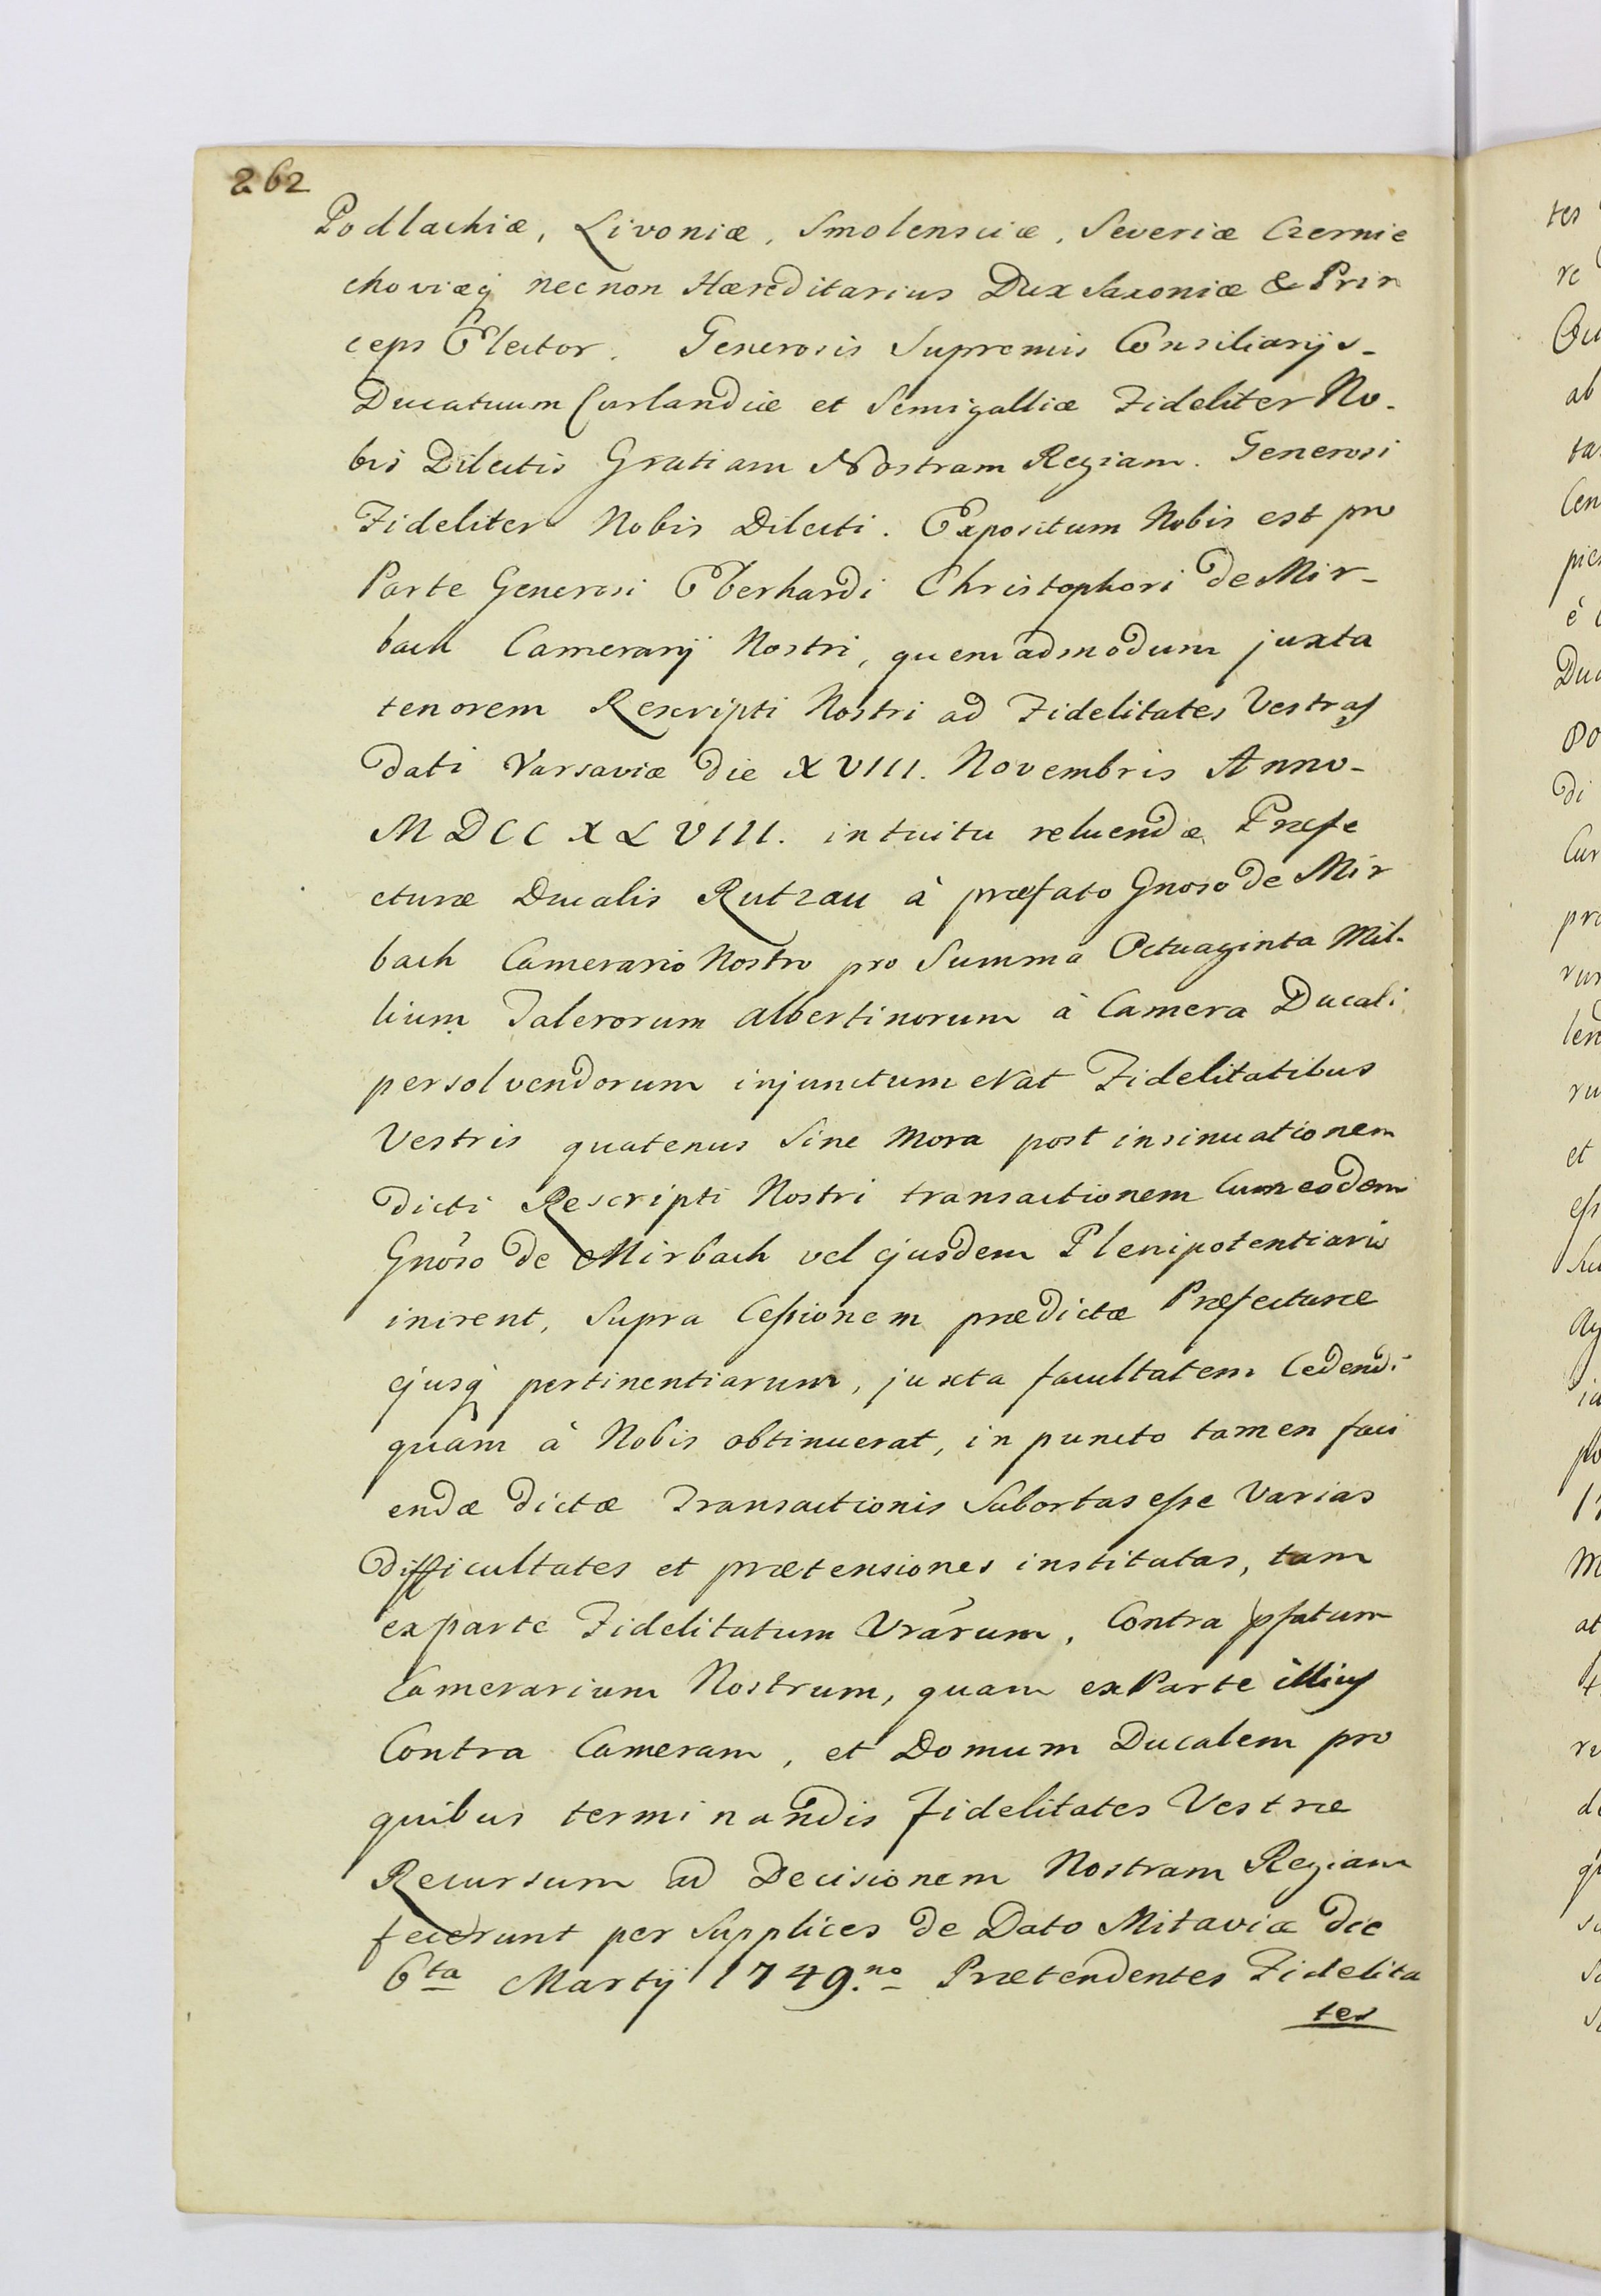 262
Podlachiæ, Livoniæ, Smolensciæ, Severiæ Czernie
choviæq necnon Hæreditarius Dux Saxoniæ & Prin
ceps Elector. Generosis Supremis Consiliarijs-
Ducatuum Curlandiæ et Semigalliæ Fideliter No-
bis Dilectis Gratiam Nostram Regiam. Generosi
Fideliter Nobis Dilecti. Expositum Nobis est pro
Parte Generosi Eberhardi Christophori de Mir-
bach Camerarij Nostri, quemadmodum juxta
tenorem Rescripti Nostri ad Fidelitates Vestras
dati Varsaviæ die XVIII. Novembris Anno-
MDCCXLVIII. intuitu reluendæ Præfe
cturæ Ducalis Rutzau à præfato Gnoso de Mir
bach Camerario Nostro pro Summa Octuaginta Mil-
lium Talerorum Albertinorum à Camera Ducali
persolvendorum injunctum erat Fidelitatibus
Vestris quatenus Sine mora post insinuationem
dicti Rescripti Nostri transactionem Cum eodem
Gnõso de Mirbach vel ejusdem Plenipotentiario
inirent, Supra Cessionem prædictæ Præfecturæ
ejusq pertinentiarum, juxta facultatem Cedendi
quam à Nobis obtinuerat, in puncto tamen faci
endæ dictæ Transactionis Subortas esse Varias
difficultates et prætensiones institutas, tam
ex parte Fidelitatum Vrãrum, Contra pfatum
Camerarium Nostrum, quam ex Parte illius
Contra Cameram, et Domum Ducalem pro
quibus terminandis fidelitates Vestræ
Recursum ad Decisionem Nostram Regiam
fecerunt per Supplices de Dato Mitaviæ die
6ta Martij 1749.no Prætendentes Fidelita
tes